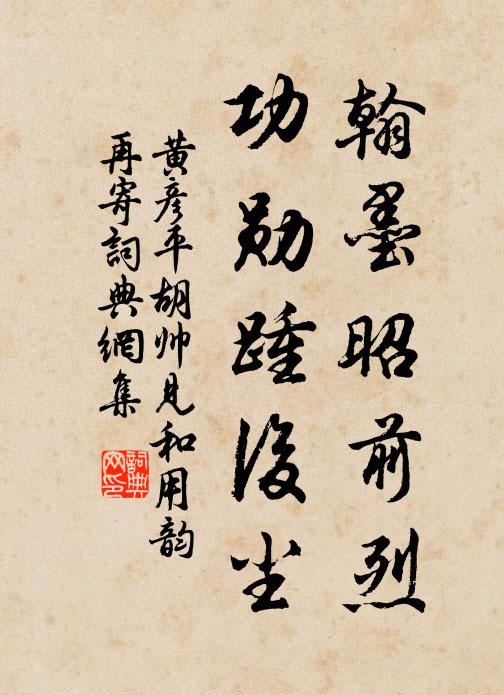 翰墨昭前烈
功勋踵後尘
黄彦平胡帅见和用韵
再寄詞典網集
詞典
网印